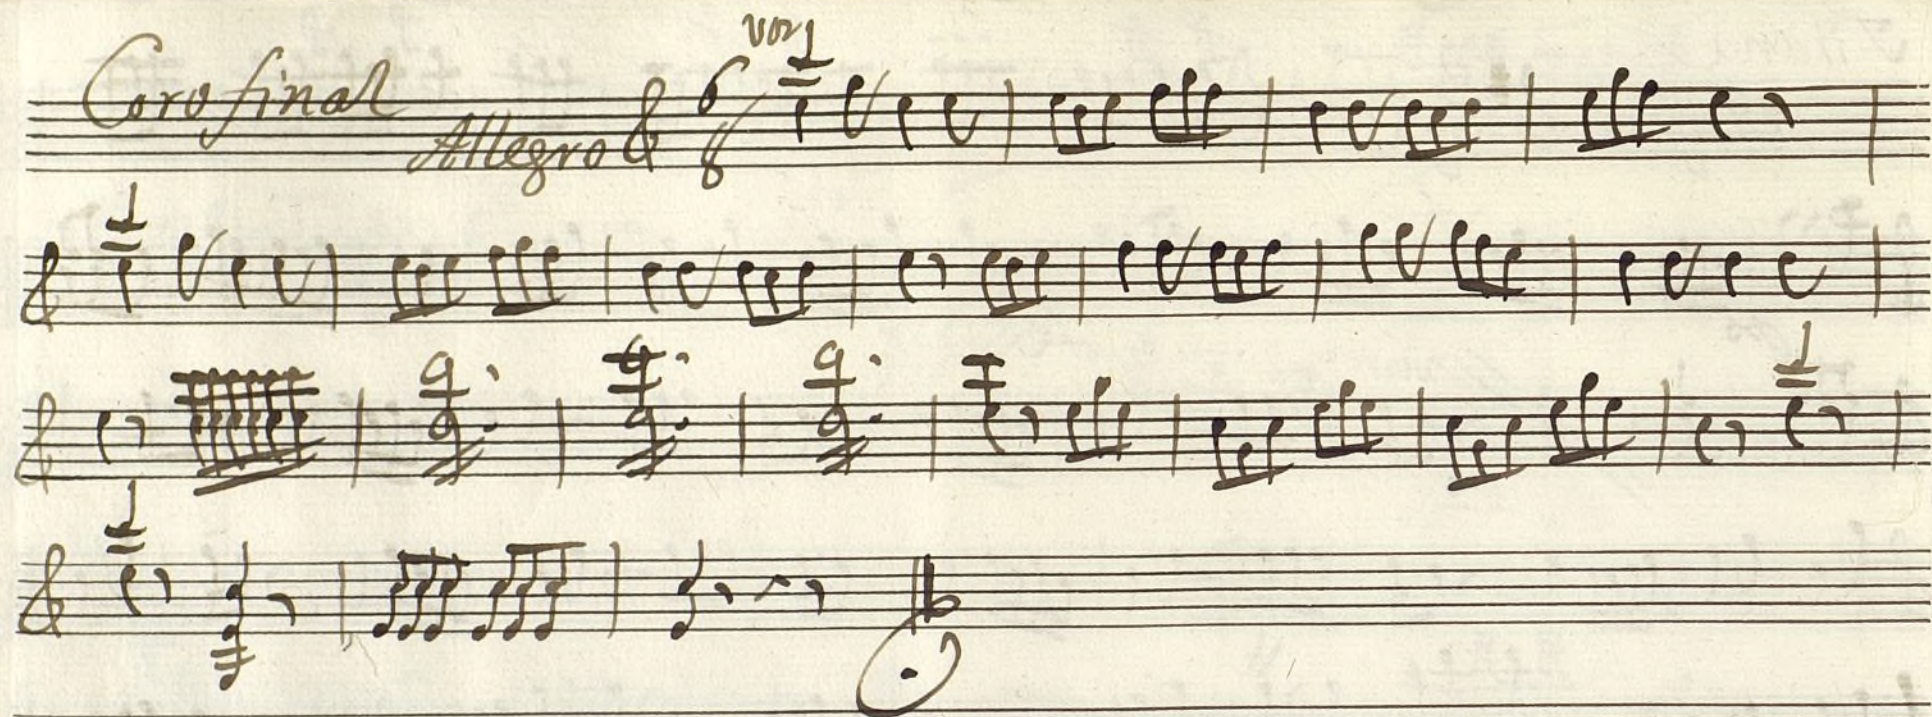 Coro final
Allegro 6
8